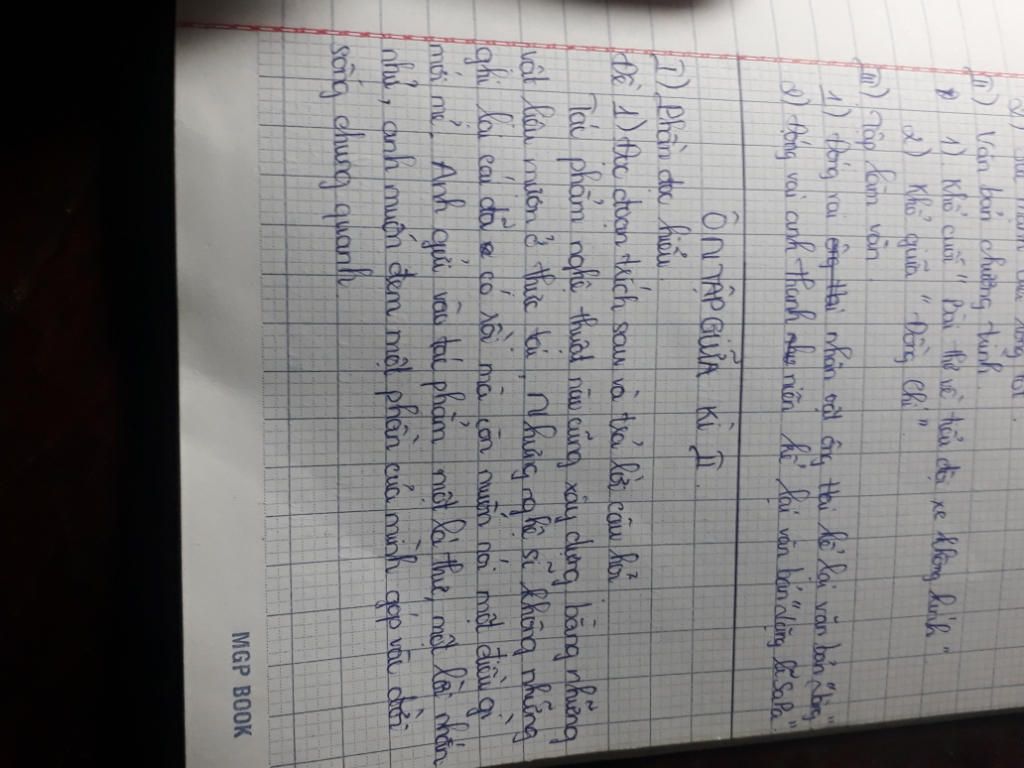 2)
II) Văn bản chương trình
1) Khổ cuối "Bài thơ về tiểu đội xe không kính"
2) Khổ giữa "Đồng chí"
III) Tập làm văn
1) Đóng vai ông Hai nhân vật ông Hai kể lại văn bản "Làng"
2) Đóng vai anh thanh niên kể lại văn bản "Lặng lẽ Sa Pa"
ÔN TẬP GIỮA KÌ II.
I) Phần đọc hiểu
Đề 1) Đọc đoạn trích sau và trả lời câu hỏi
Tác phẩm nghệ thuật nào cũng xây dựng bằng những
vật liệu mượn ở thực tại, những nghệ sĩ không những
ghi lại cái đã có rồi mà còn muốn nói một điều gì
mới mẻ. Anh gửi vào tác phẩm một lá thư, một lời nhắn
nhủ, anh muốn đem một phần của mình góp vào đời
sống chung quanh.
MGP BOOK